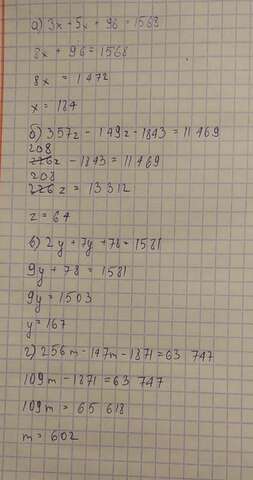 а) 3x + 5x + 96 = 1568
8x + 96 = 1568
8x = 1472
x = 184
б) 357z - 149z - 1843 = 11 469
208
226z - 1843 = 11 469
208
226 z = 13 312
z = 64
в) 2y + 7y + 78 = 1581
9y + 78 = 1581
9y = 1503
y = 167
г) 256m - 147m - 1871 = 63 747
109m - 1871 = 63 747
109m = 65 618
m = 602